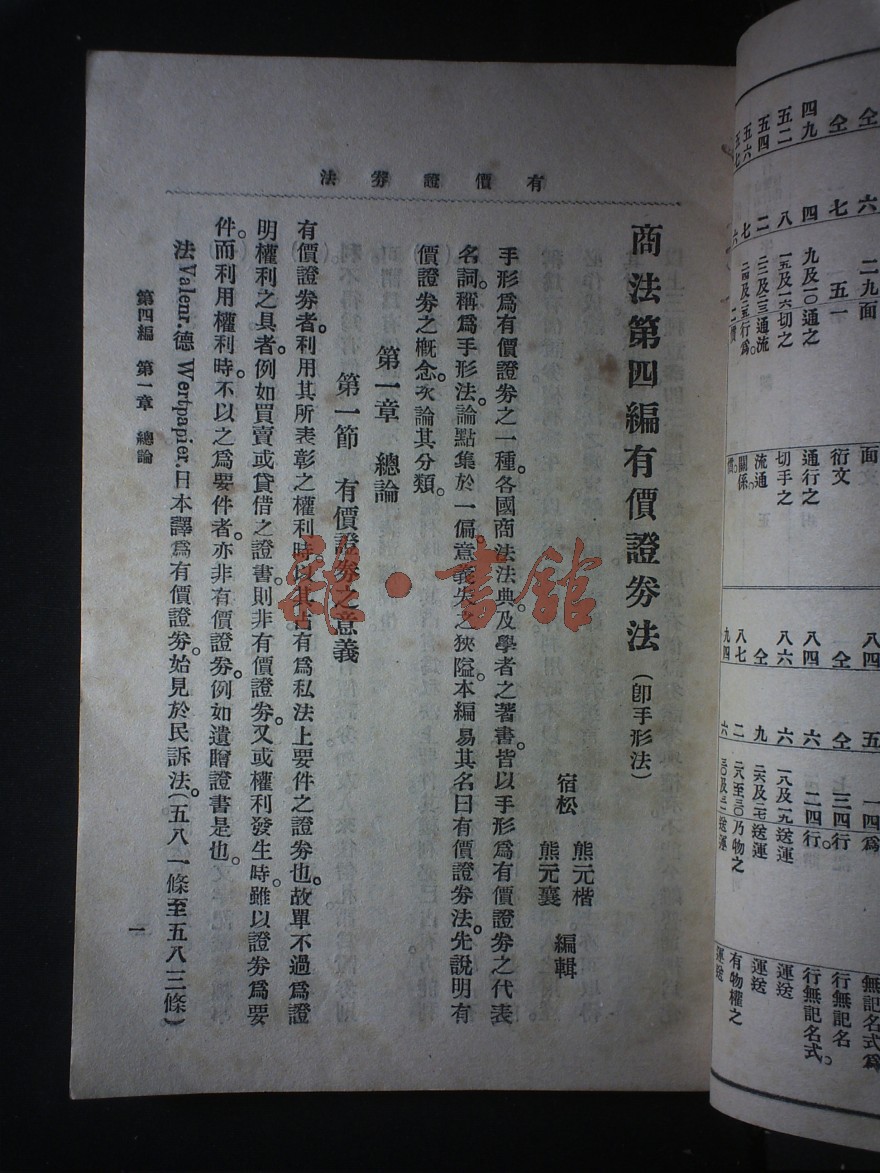 有價證券法
商法第四編有價證券法（卽手形法）
宿松 熊元楷 熊元襄 編輯
手形爲有價證券之一種。各國商法法典。及學者之著書。皆以手形爲有價證券之代表
名詞。稱爲手形法。論點集於一偏。意義失之狹隘。本編易其名曰有價證券法。先說明有
價證券之概念。次論其分類。
第一章 總論
第一節 有價證券之意義
有價證券者。利用其所表彰之權利時。以其占有爲私法上要件之證券也。故單不過爲證
明權利之具者。例如買賣或貸借之證書。則非有價證券。又或權利發生時。雖以證券爲要
件。而利用權利時。不以之爲要件者。亦非有價證券。例如遺贈證書是也。
法Valenr.德Wertpapier.日本譯爲有價證券。始見於民訴法。（五八一條至五八三條）
第四編 第一章 總論
一
雜·書館
仝 六 二九面 面
仝 七 五一 衍文
四九 四 九及一〇通之 通行之
五二 八 一五及一六切之 切手之
五四 二 二三及二三通流 流通
五六 七 二四及二五行爲 關係。
五 一四爲 無記名式爲
仝 仝 三四行 行無記名
八四 六 二四行。 行無記名式。
八六 六 一八及一九送運 運送
仝 九 二六及二七送運 運送
八七 二 二八至三〇乃物之 有物權之
九四 六 三〇及三一送運 運送